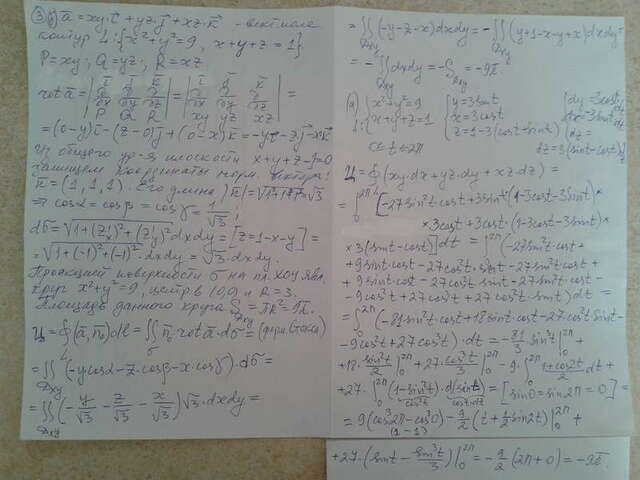 ③ a̅ = xy·i̅ + yz·j̅ + xz·k̅ - вект. поле
контур L: {x²+y²=9, x+y+z=1}
P=xy; Q=yz; R=xz
rot a̅ = |i̅ j̅ k̅; ∂/∂x ∂/∂y ∂/∂z; P Q R| = |i̅ j̅ k̅; ∂/∂x ∂/∂y ∂/∂z; xy yz xz| =
= (0-y)i̅ - (z-0)j̅ + (0-x)k̅ = -y·i̅ - z·j̅ - x·k̅
из общего ур-я плоскости x+y+z-1=0
запишем координаты норм. вектора:
n̅ = (1,1,1). Его длина |n̅| = √1+1+1 = √3
⇒ cosα = cosβ = cosγ = 1/√3;
dσ = √1+(z'x)²+(z'y)² dxdy = [z=1-x-y] =
= √1+(-1)²+(-1)² dxdy = √3 dxdy.
Проекцией поверхности σ на пл. XOY явл.
круг x²+y²=9, центр в (0,0) и R=3.
Площадь данного круга S = πR² = 9π.
Ц = ∮(a̅, n̅₀)dl = ∬ n̅₀·rot a̅·dσ = (форм. Стокса)
= ∬(-y cosα - z·cosβ - x·cosγ)·dσ =
= ∬(-y/√3 - z/√3 - x/√3)√3·dxdy =
= ∬(-y-z-x)dxdy = -∬(y+1-x-y+x)dxdy =
Dxy
= -∬dxdy = -S = -9π
Dxy
L: {x²+y²=9, x+y+z=1 {y=3sint, x=3cost, z=1-3(cost+sint) {dy=3cost dt
dx=-3sint dt
dz=3(sint-cost)dt
0≤t≤2π
Ц = ∮(xy dx + yz dy + xz dz) =
= ∫₀^2π [-27sin²t cost + 3sint·(1-3cost-3sint)×
×3cost + 3cost·(1-3cost-3sint)×
×3(sint-cost)]dt = ∫₀^2π(-27sin²t cost +
+9sint cost - 27cos²t·sint - 27sin²t cost +
+9sint cost - 27cos²t sint - 27sin²t cost -
-9cos²t + 27cos³t + 27cos²t sint)dt =
= ∫₀^2π(-81sin²t cost + 18sint cost - 27cos²t sint -
-9cos²t + 27cos³t)·dt = -81/3 sin³t|₀^2π +
+18·sin²t/2|₀^2π + 27·cos³t/3|₀^2π - 9·∫₀^2π 1+cos2t/2 dt +
+27·∫₀^2π(1-sin²t)·d(sint) = [sin0=sin2π=0] =
cos²t cost·dt
= 9(cos³2π - cos³0) - 9/2(t+1/2 sin2t)|₀^2π +
(1-1)
+27·(sint - sin³t/3)|₀^2π = -9/2(2π+0) = -9π.